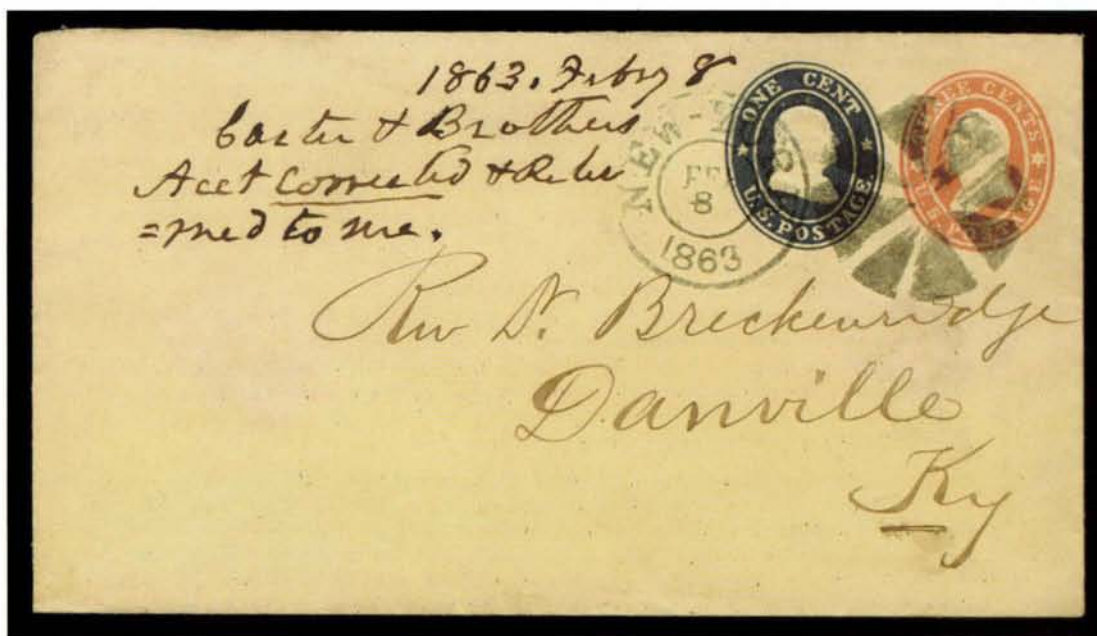 1863. Febry 8
Carter & Brothers
Acct Corrected & Retur
=ned to me.
NEW-YORK
FEB
8
1863
ONE CENT
U.S. POSTAGE.
THREE CENTS
U.S. POSTAGE
Rev Dr. Breckenridge
Danville
Ky